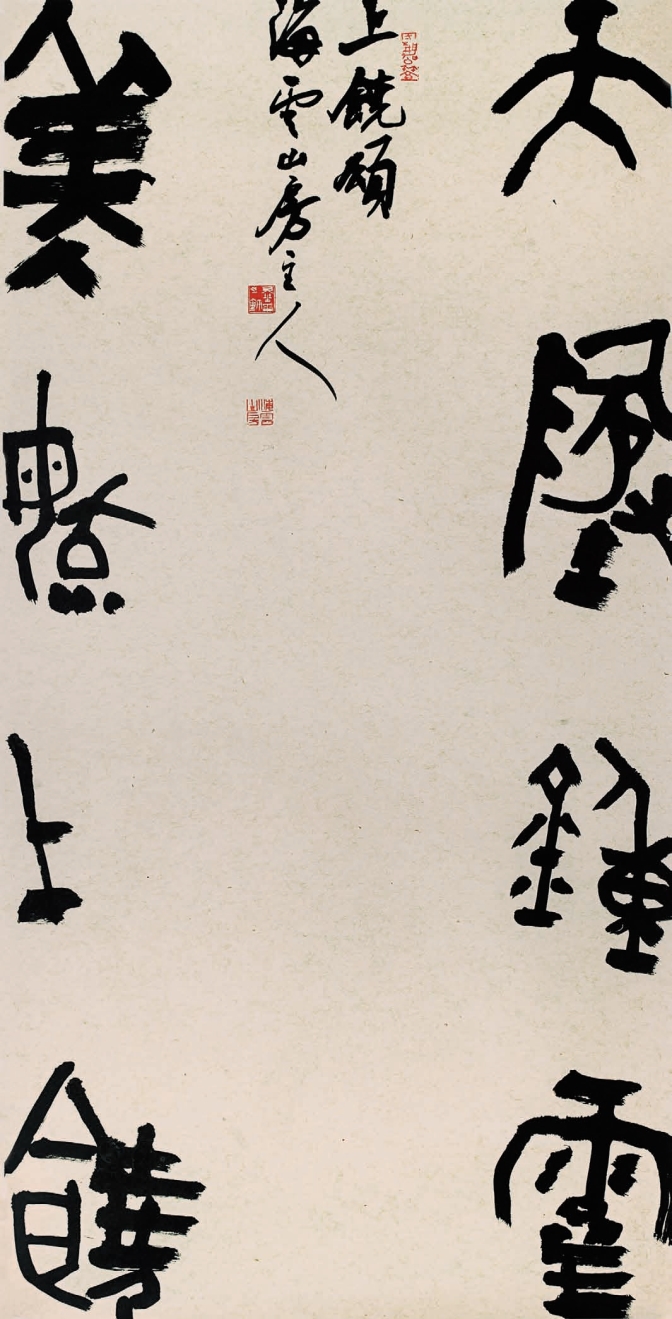 天墬鍾靈
上饒頌
海雲山房主人
美點上饒